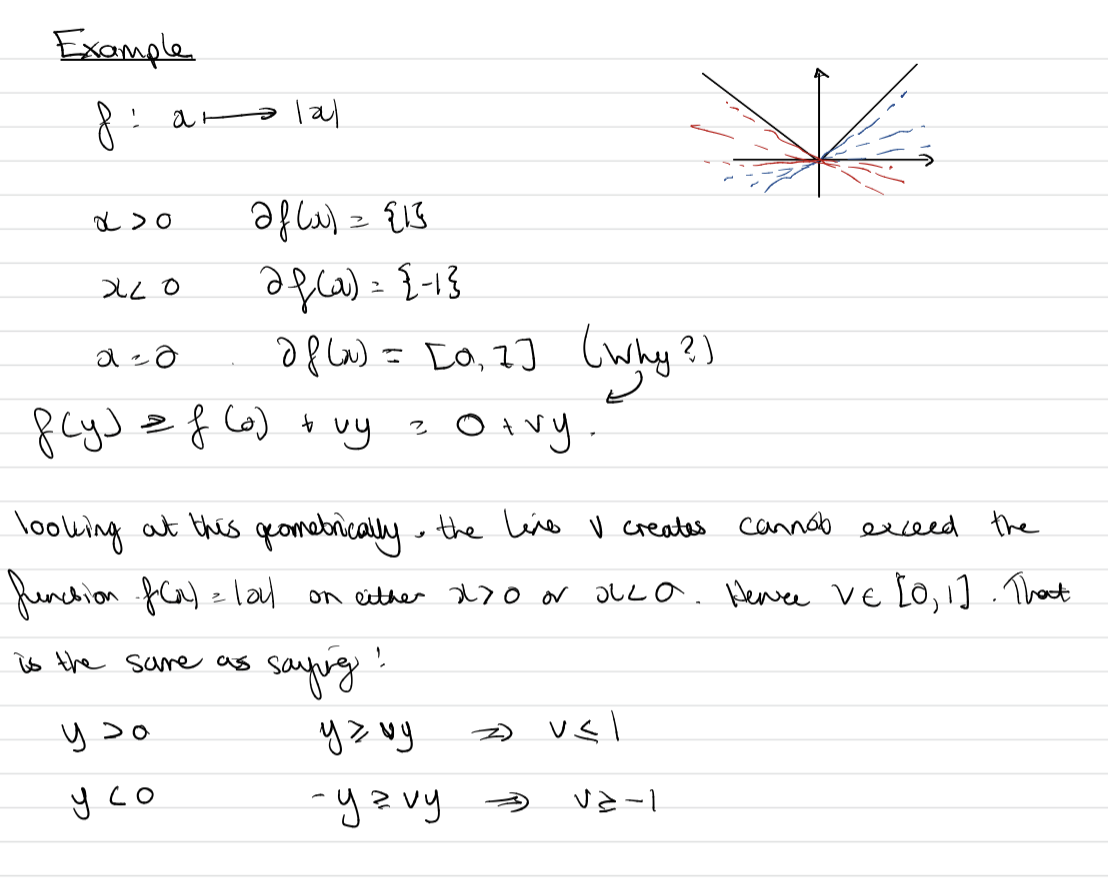 Example
f : x ↦ |x|
x > 0 ∂f(x) = {1}
x < 0 ∂f(x) = {-1}
x = 0 ∂f(x) = [0, 1] (Why?)
f(y) ≥ f(0) + vy = 0 + vy.
looking at this geometrically, the line v creates cannot exceed the
function f(x) = |x| on either x > 0 or x < 0. Hence v ∈ [0, 1]. That
is the same as saying:
y > 0 y ≥ vy ⇒ v ≤ 1
y < 0 -y ≥ vy ⇒ v ≥ -1